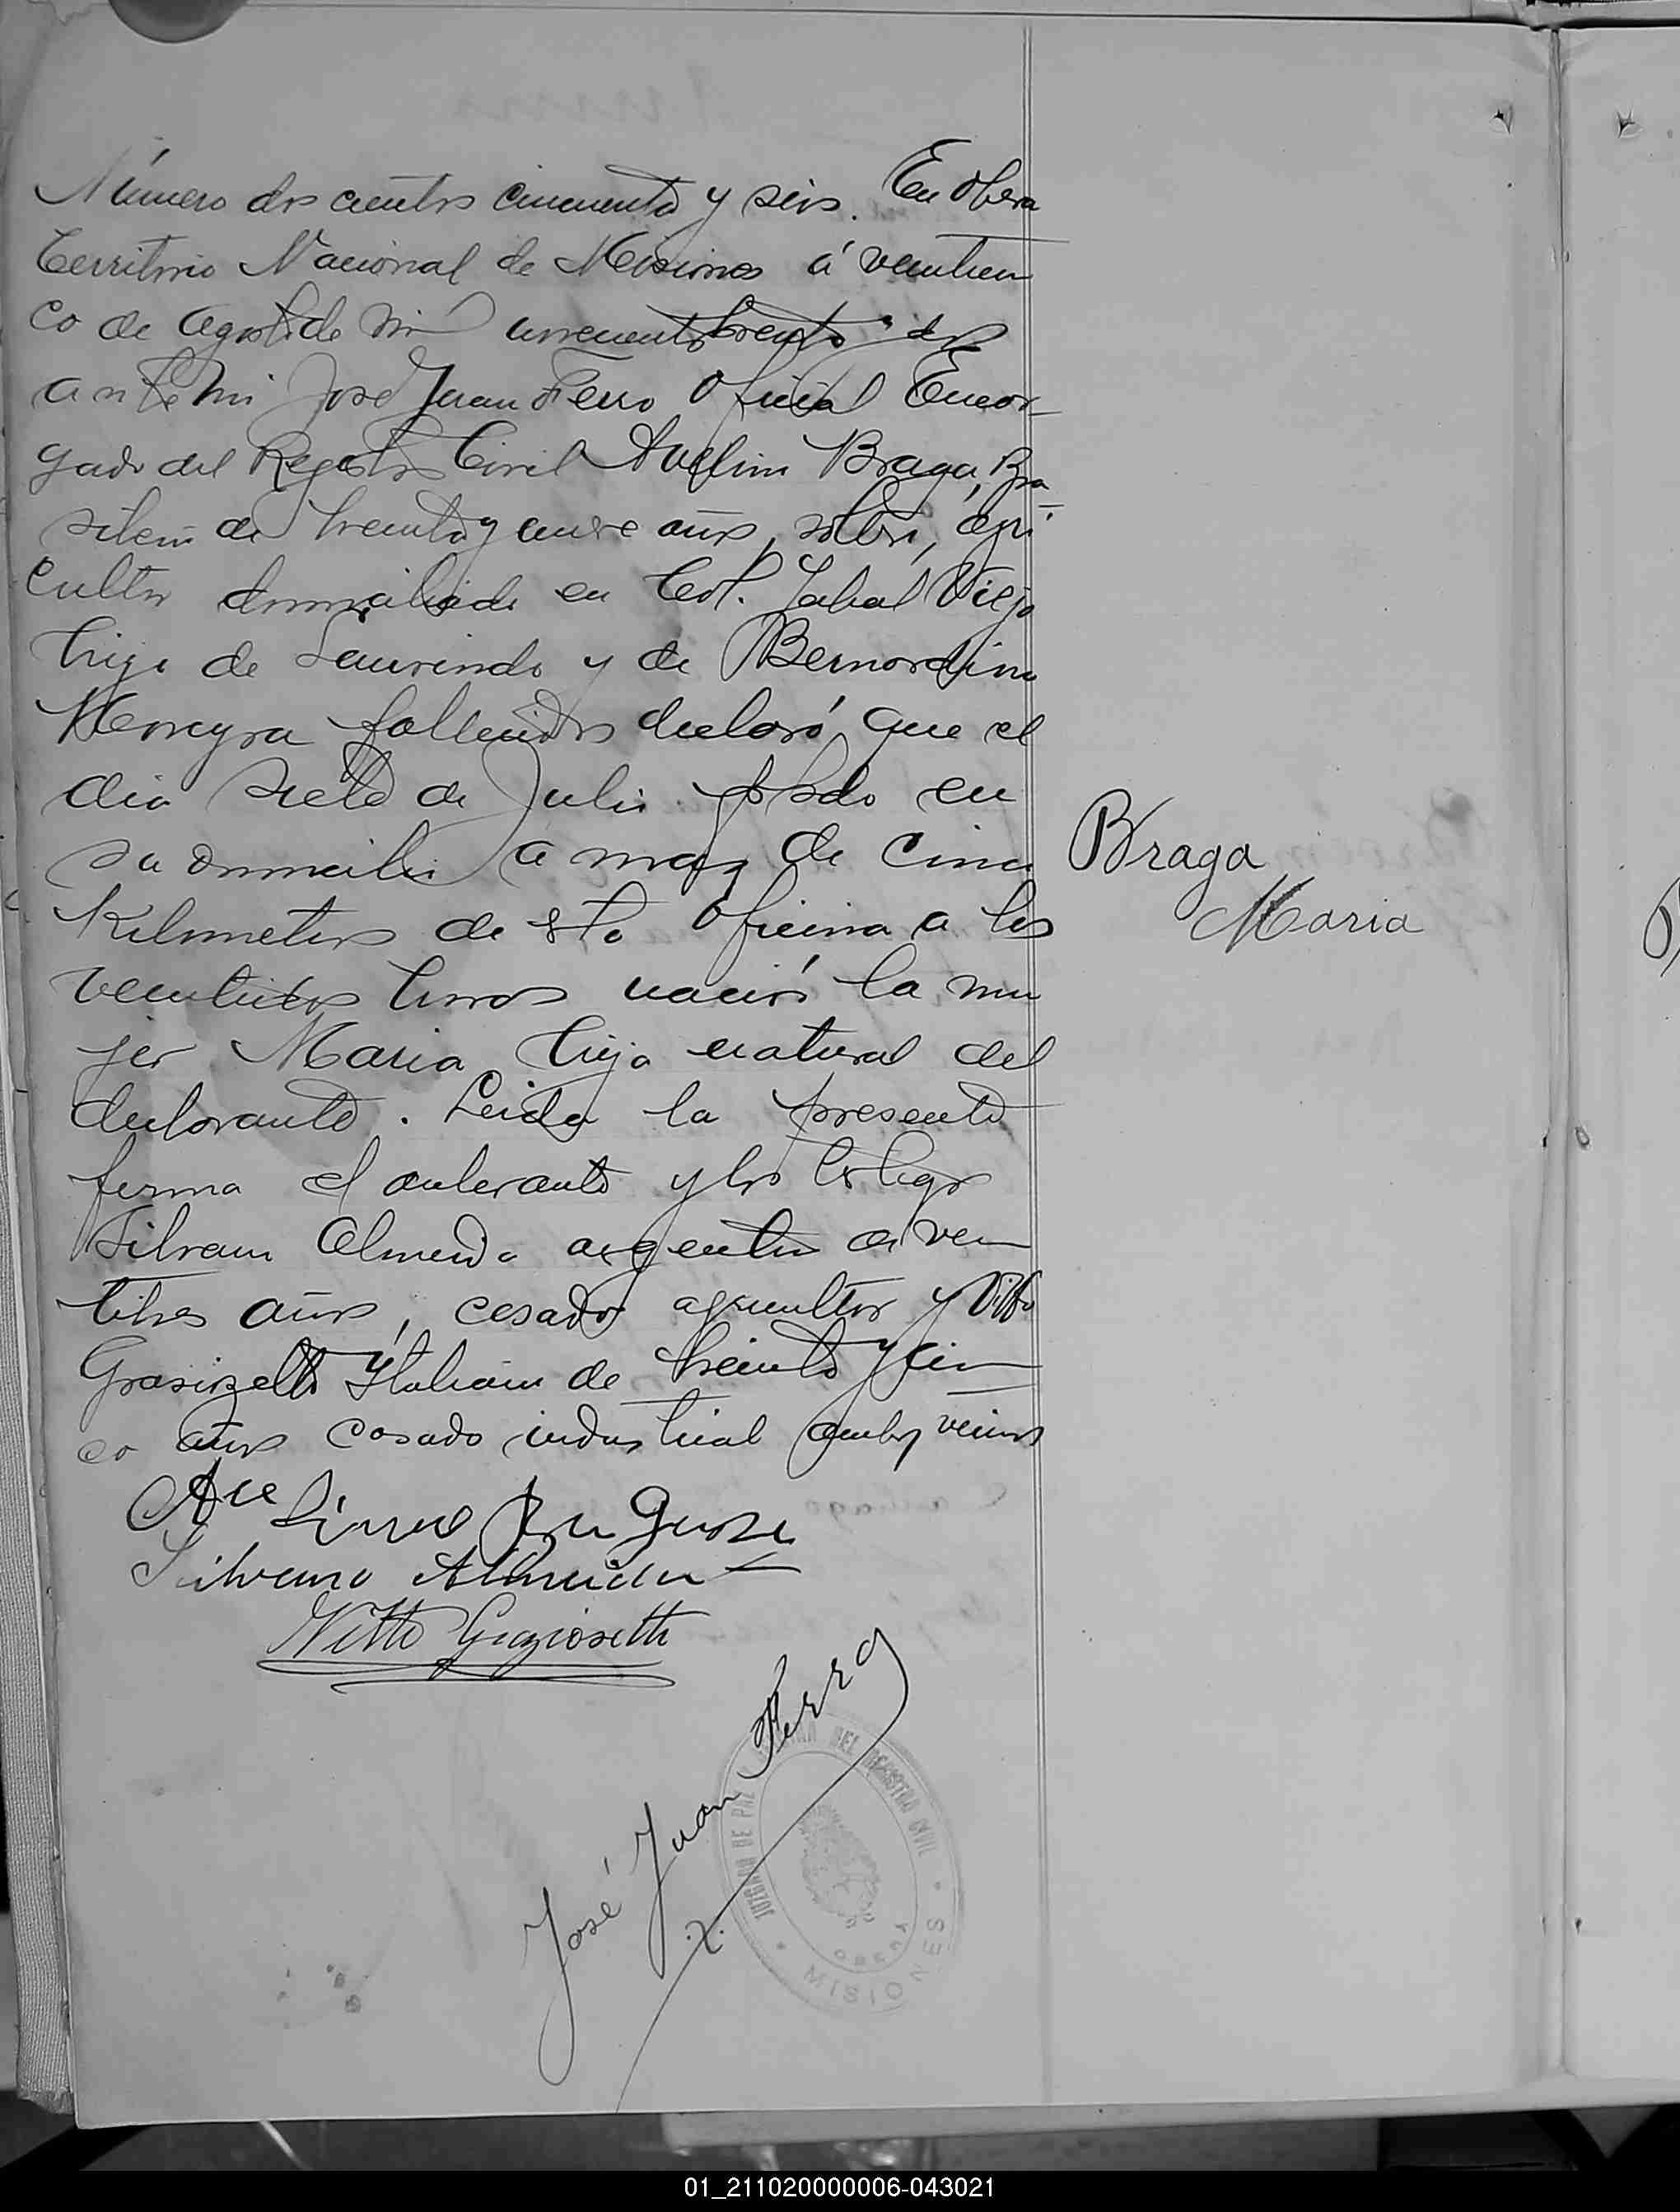 Número dos cientos cincuenta y seis. En Obera
Territorio Nacional de Misiones á veinticin
co de Agosto de mil novecientos treinta y dos
ante mi José Juan Ferro Oficial Encar-
gado del Registro Civil Avelino Braga, Bra-
sileño de treinta y nueve años, soltero, agri
cultor domiciliado en Col. Yabal Viejo
hijo de Laurindo y de Bernardina
Ferreyra fallecidos declaró que el
dia siete de Julio ppsdo en
su domicilio a mas de cinco
Kilometros de esta oficina a las
veintidos horas nació la mu
jer Maria hija natural del
declarante. Leida la presente
firma el declarante y los testigos
Silvano Almeida argentino de vein
titres años, casado agricultor y Vitto
Italiano de treinta y cin
co años casado industrial ambos vecinos
Braga
Maria
Silvano Almeida
Vitto
José Juan Ferro
JUZGADO DE PAZ DEL REGISTRO CIVIL
OBERA
MISIONES
01_211020000006-043021